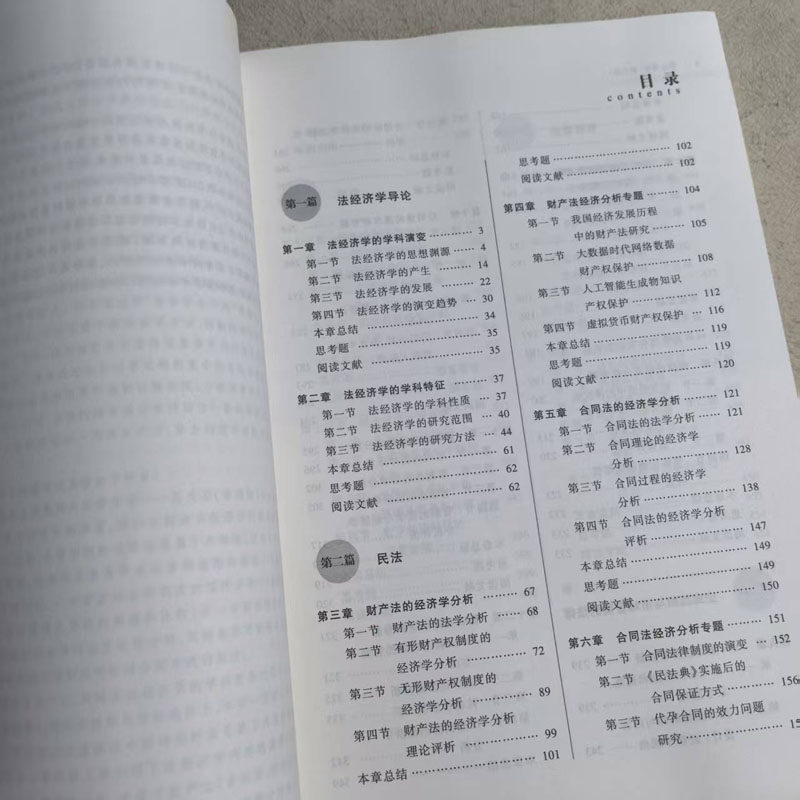 目录
contents
第一篇 法经济学导论
第一章 法经济学的学科演变 ………… 3
第一节 法经济学的思想渊源 …… 4
第二节 法经济学的产生 ………… 14
第三节 法经济学的发展 ………… 22
第四节 法经济学的演变趋势 …… 30
本章总结 ………………………… 34
思考题 …………………………… 35
阅读文献 ………………………… 35
第二章 法经济学的学科特征 ………… 37
第一节 法经济学的学科性质 …… 37
第二节 法经济学的研究范围 …… 40
第三节 法经济学的研究方法 …… 44
本章总结 ………………………… 61
思考题 …………………………… 62
阅读文献 ………………………… 62
第二篇 民法
第三章 财产法的经济学分析 ………… 67
第一节 财产法的法学分析 ……… 68
第二节 有形财产权制度的
经济学分析 ……………… 72
第三节 无形财产权制度的
经济学分析 ……………… 89
第四节 财产法的经济学分析
理论评析 ………………… 99
本章总结 ………………………… 101
思考题 …………………………… 102
阅读文献 ………………………… 102
第四章 财产法经济分析专题 ………… 104
第一节 我国经济发展历程
中的财产法研究 ………… 105
第二节 大数据时代网络数据
财产权保护 ……………… 108
第三节 人工智能生成物知识
产权保护 ………………… 112
第四节 虚拟货币财产权保护 …… 116
本章总结 ………………………… 119
思考题 …………………………… 119
阅读文献 ………………………… 120
第五章 合同法的经济学分析 ………… 121
第一节 合同法的法学分析 ……… 121
第二节 合同理论的经济学
分析 ……………………… 128
第三节 合同过程的经济学
分析 ……………………… 138
第四节 合同法的经济学分析
评析 ……………………… 147
本章总结 ………………………… 149
思考题 …………………………… 149
阅读文献 ………………………… 150
第六章 合同法经济分析专题 ………… 151
第一节 合同法律制度的演变 …… 152
第二节 《民法典》实施后的
合同保证方式 …………… 156
第三节 代孕合同的效力问题
研究 ………………………